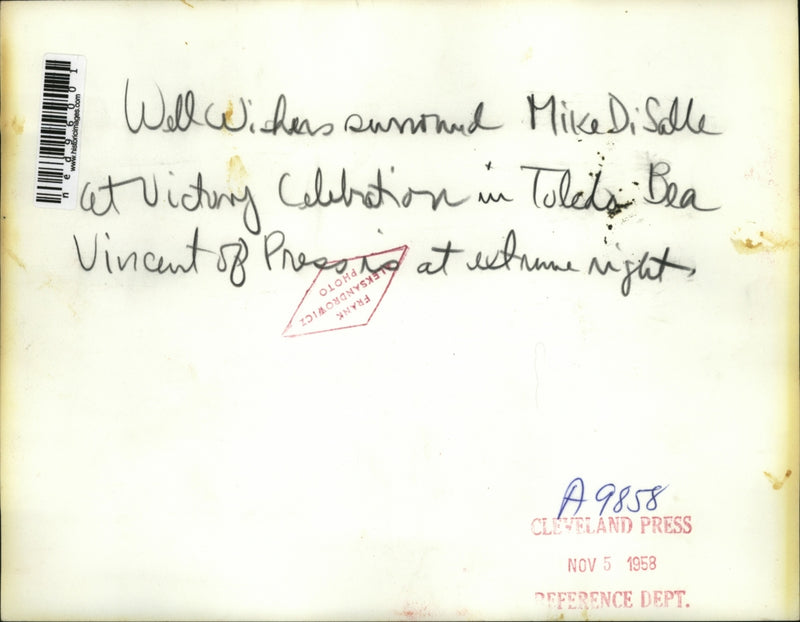 Well Wishers surround Mike DiSalle
at Victory Celebration in Toledo Bea
Vincent of Press is at extreme right.
FRANK
ALEKSANDROWICZ
PHOTO
A 9858
CLEVELAND PRESS
NOV 5 1958
REFERENCE DEPT.
ned96001
www.historicimages.com